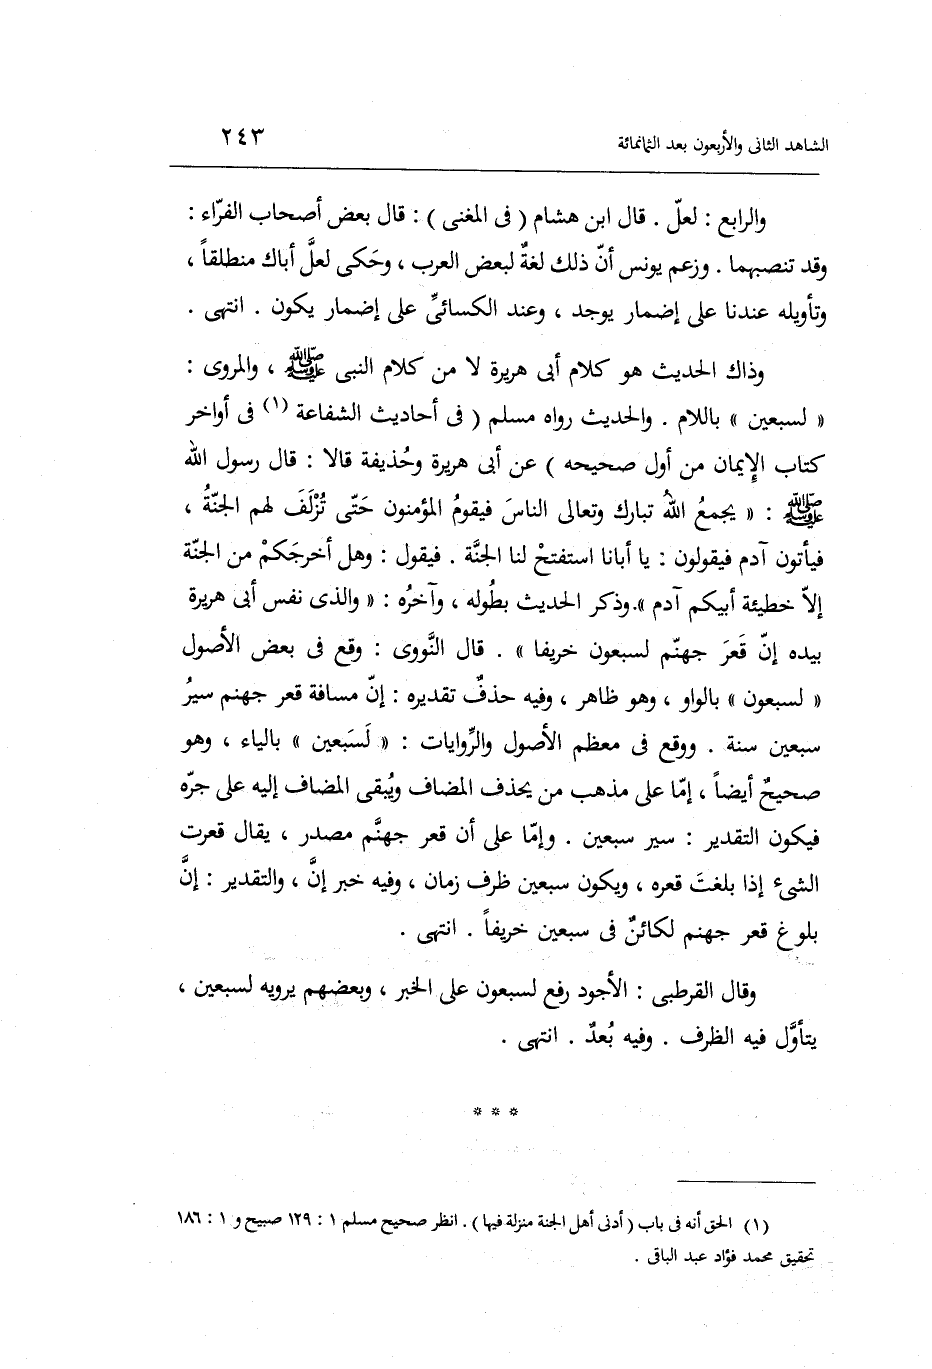 الشاهد الثانى والأربعون بعد الثمانمائة ٢٤٣
والرابع : لعلّ . قال ابن هشام ( فى المغنى ) : قال بعض أصحاب الفرّاء :
وقد تنصبهما . وزعم يونس أنّ ذلك لغةٌ لبعض العرب ، وحَكى لعلَّ أباك منطلقاً ،
وتأويله عندنا على إضمار يوجد ، وعند الكسائىِّ على إضمار يكون . انتهى .
وذاك الحديث هو كلام أبى هريرة لا من كلام النبى ﷺ ، والمروى :
« لسبعين » باللام . والحديث رواه مسلم ( فى أحاديث الشفاعة (١) فى أواخر
كتاب الإيمان من أول صحيحه ) عن أبى هريرة وحُذيفة قالا : قال رسول الله
ﷺ : « يجمعُ اللهُ تبارك وتعالى الناسَ فيقومُ المؤمنون حَتّى تُزْلَفَ لهم الجنّةُ ،
فيأتون آدم فيقولون : يا أبانا استفتحْ لنا الجنَّة . فيقول : وهل أخرجَكمْ من الجنّة
إلاّ خطيئة أبيكم آدم ». وذكر الحديث بطُوله ، وآخرُه : « والذى نفس أبى هريرة
بيده إنّ قَعرَ جهنّم لسبعون خريفا » . قال النَّووى : وقع فى بعض الأصول
« لسبعون » بالواو ، وهو ظاهر ، وفيه حذفٌ تقديره : إنّ مسافة قعر جهنم سيرُ
سبعين سنة . ووقع فى معظم الأصول والرِّوايات : « لَسَبعين » بالياء ، وهو
صحيحٌ أيضاً ، إمّا على مذهب من يحذف المضاف ويُبقى المضاف إليه على جرّه
فيكون التقدير : سير سبعين . وإمّا على أن قعر جهنَّم مصدر ، يقال قعرت
الشىء إذا بلغتَ قعره ، ويكون سبعين ظرف زمان ، وفيه خبر إنَّ ، والتقدير : إنَّ
بلوغ قعر جهنم لكائنٌ فى سبعين خريفاً . انتهى .
وقال القرطبى : الأجود رفع لسبعون على الخبر ، وبعضهم يرويه لسبعين ،
يتأوَّل فيه الظرف . وفيه بُعدٌ . انتهى .
* * *
(١) الحق أنه فى باب ( أدنى أهل الجنة منزلة فيها ) . انظر صحيح مسلم ١ : ١٢٩ صبيح و ١ : ١٨٦
تحقيق محمد فؤاد عبد الباقى .